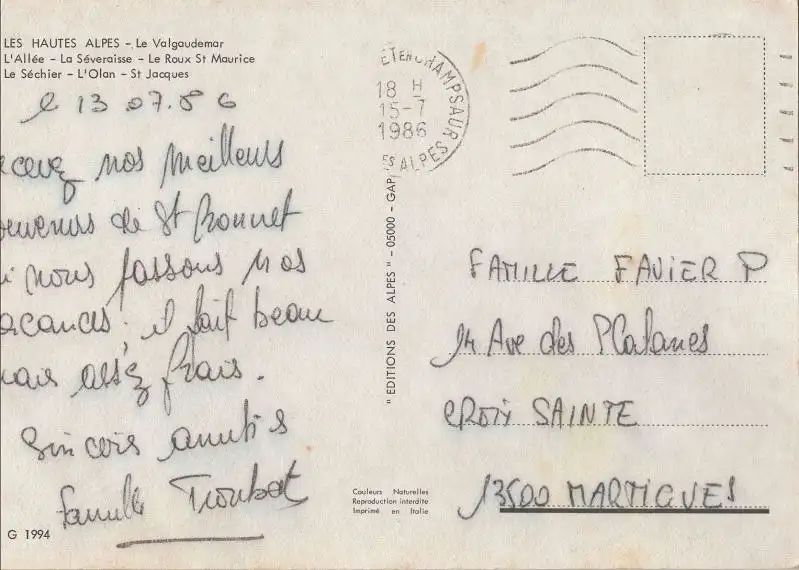 LES HAUTES ALPES - Le Valgaudemar
L'Allée - La Séveraisse - Le Roux St Maurice
Le Séchier - L'Olan - St Jacques
le 13 07.86
cevez nos meilleurs
ouvenirs de St Bonnet
i nous passons nos
acances; il fait beau
mais assez frais.
Sincères amitiés
famille Troubat
G 1994
ST BONNET EN CHAMPSAUR
18 H
15-7
1986
ES ALPES
" EDITIONS DES ALPES " - 05000 - GAP
Couleurs Naturelles
Reproduction interdite
Imprimé en Italie
FAMILLE FAVIER P
14 Ave des Platanes
CROIX SAINTE
13500 MARTIGUES